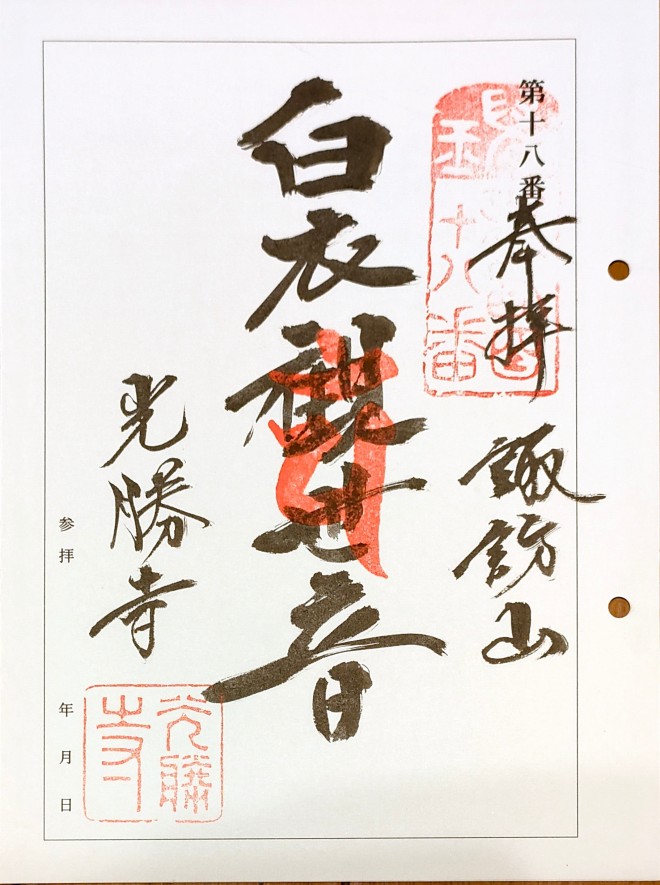 第十八番
奉拝
十八番
諏訪山
白衣観世音
光勝寺
参拝 年 月 日
光勝寺